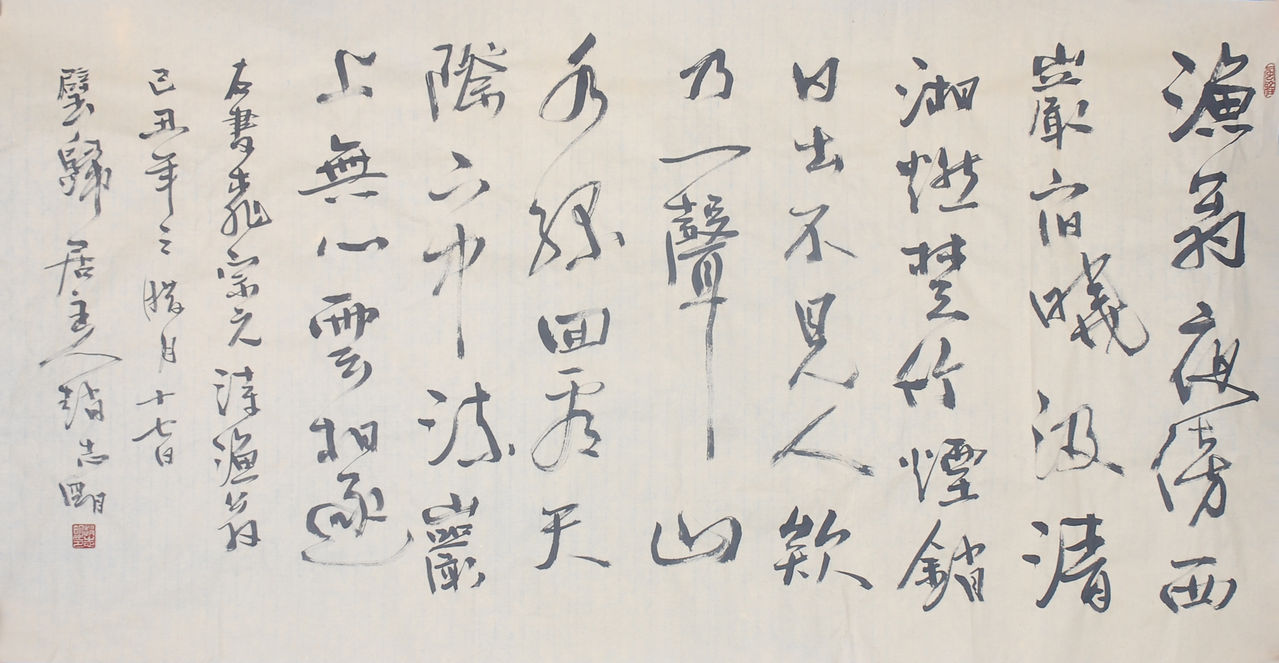 漁翁夜傍西
巖宿曉汲清
湘燃楚竹煙銷
日出不見人欸
乃一聲山
水綠回看天
際下中流巖
上無心雲相逐
右書柳宗元詩漁翁
己丑年之臘月十七日
璧歸居主人趙志